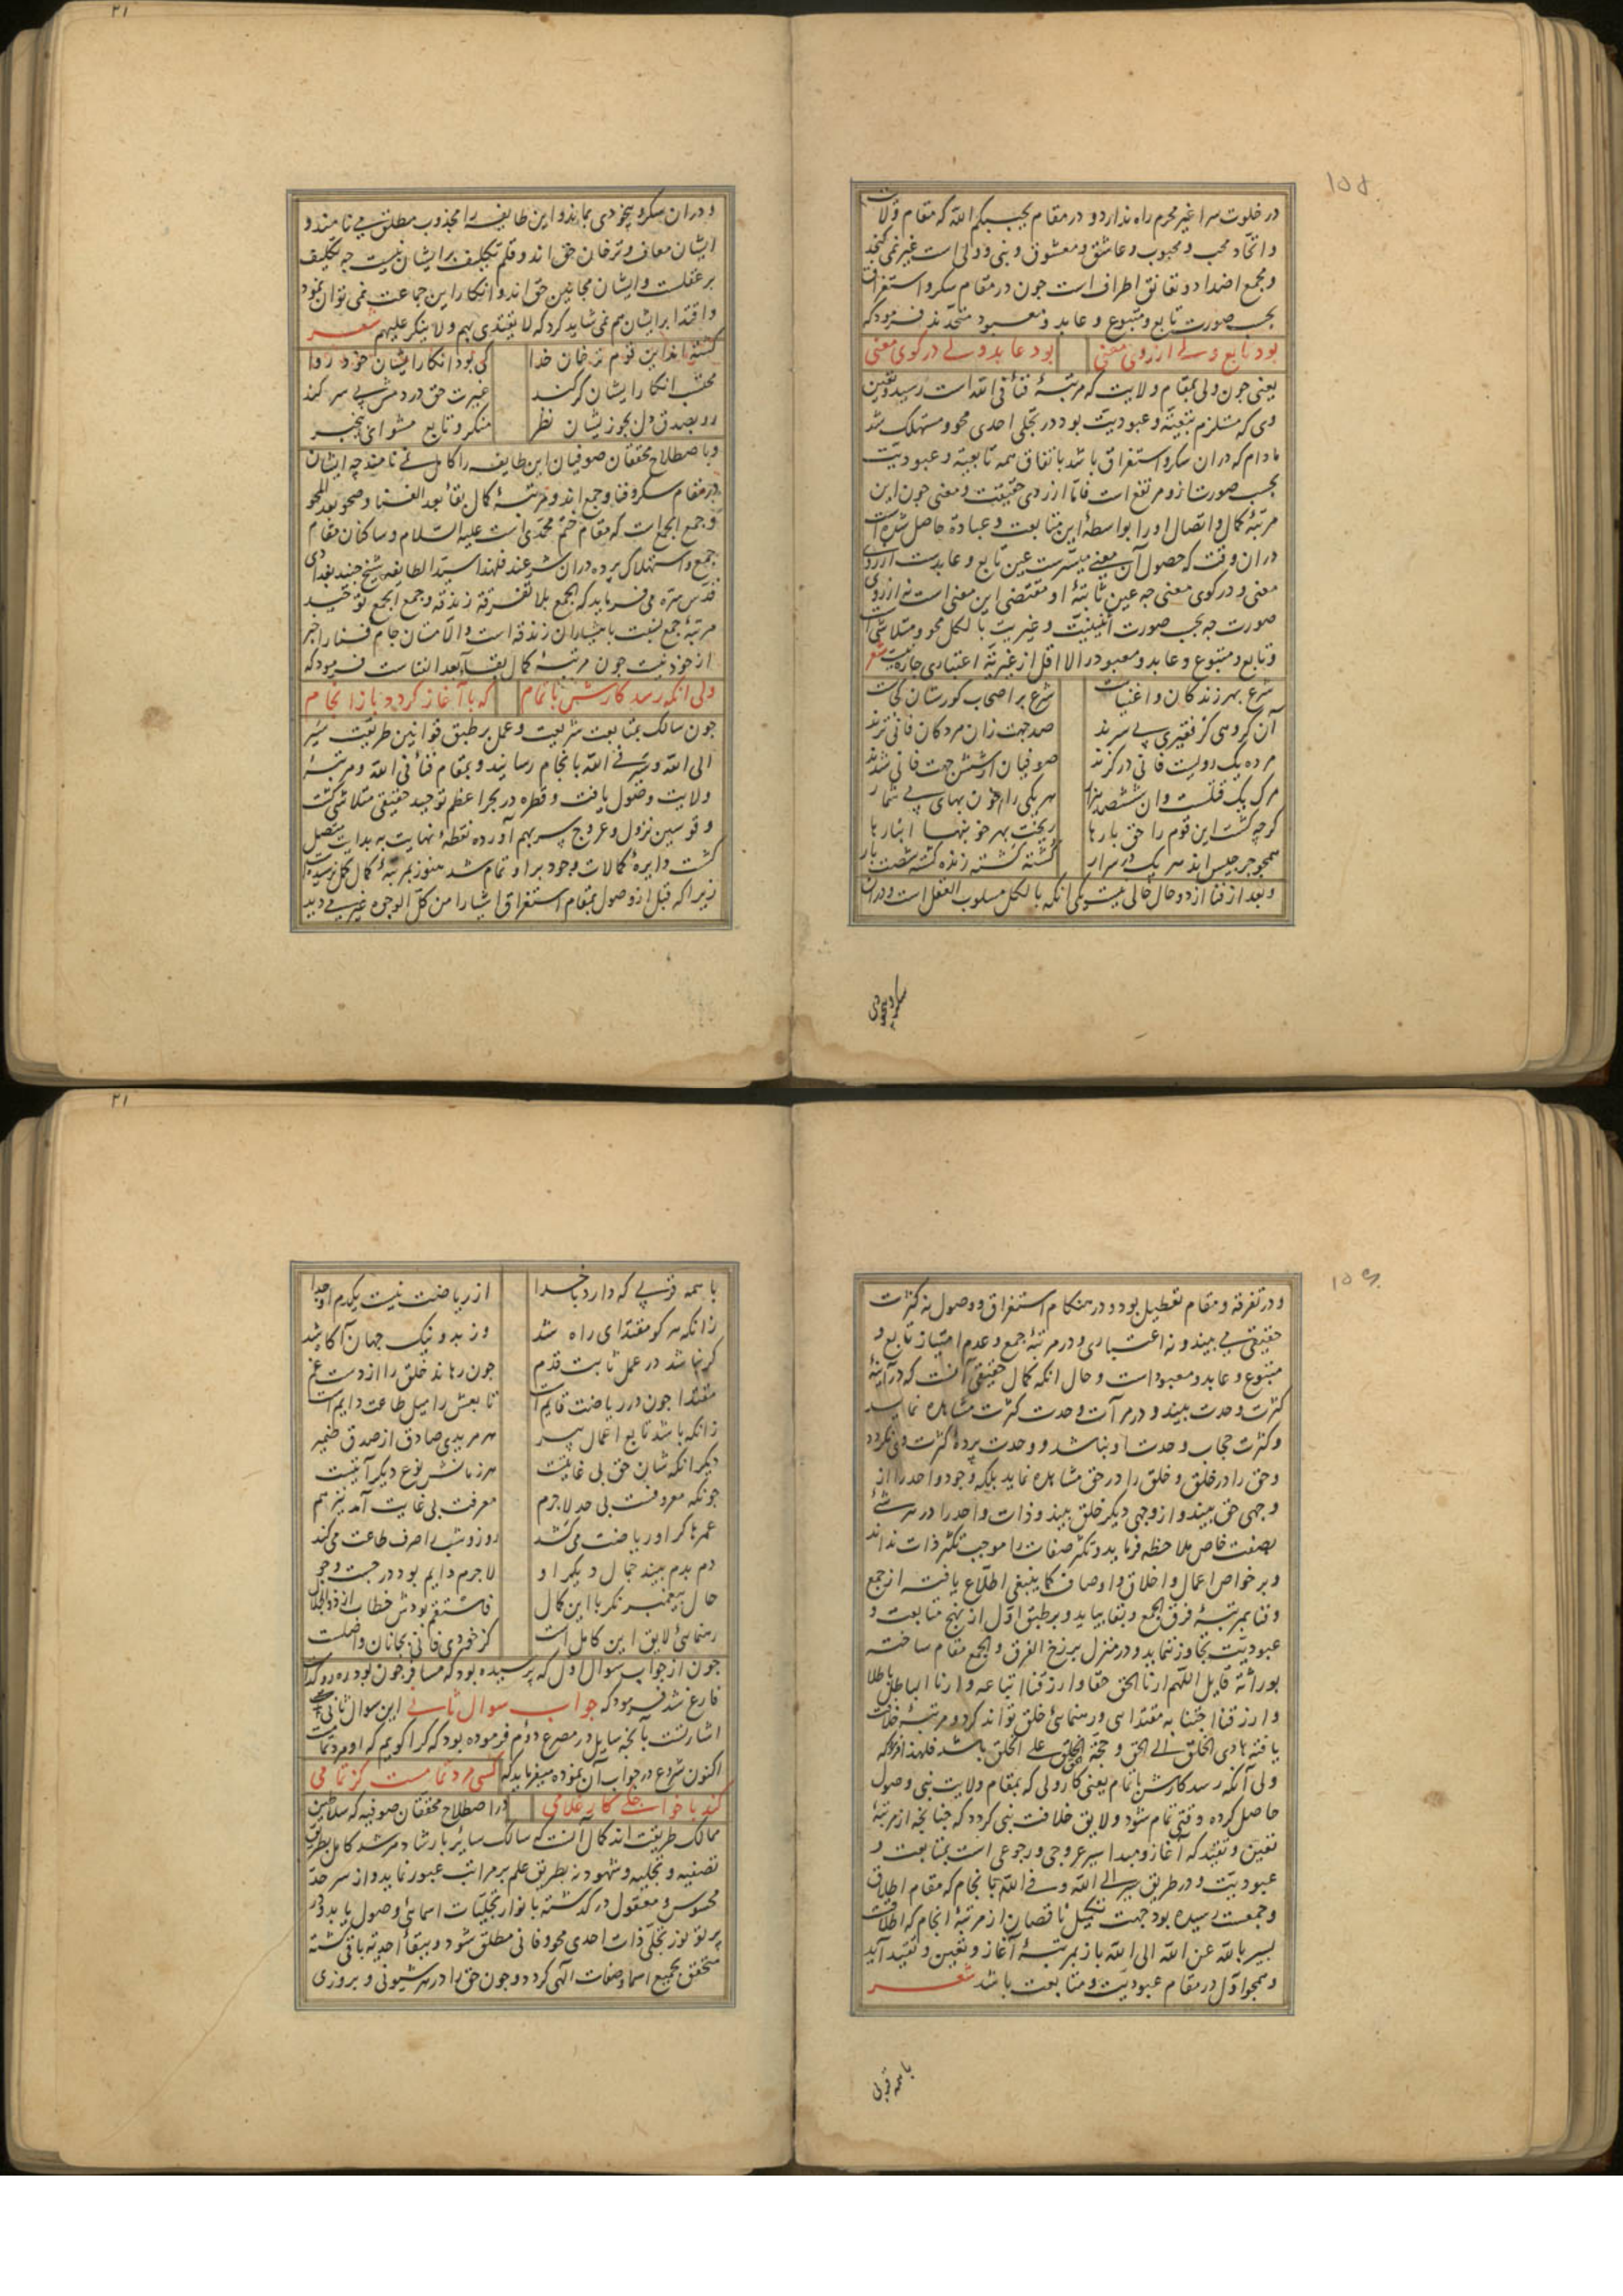 در خلوت سرا غیر محرم راه ندارد و در مقام یحببکم الله که مقام ولایت
و اتحاد محب و محبوب و عاشق و معشوق و نبی و ولی است غیر نمی‌گنجد
و مجمع اضداد و تعانق اطراف است چون در مقام سکر و استغراق
بحسب صورت تابع و متبوع و عابد و معبود متحدند فرمود که
بود تابع ولی از روی معنی
بود عابد ولی در کوی معنی
یعنی چون ولی بمقام ولایت که مرتبۀ فنا فی الله است رسید و تعین
وی که مستلزم تبعیة و عبودیت بود در تجلی احدی محو و مستهلک شد
مادام که در ان سکر و استغراق باشد باتفاق همه تابعیة و عبودیت
بحسب صورت ازو مرتفع است فاما از روی حقیقت و معنی چون این
مرتبۀ کمال و اتصال او را بواسطۀ این متابعت و عبادة حاصل شده است
در ان وقت که حصول آن معنی میسرست عین تابع و عابدست از روی
معنی و در کوی معنی چه عین ثابتۀ او مقتضی این معنی است نه از روی
صورت چه بحسب صورت اثنینیت و غیریت بالکل محو و متلاشی است
و تابع و متبوع و عابد و معبود را لا اقل از غیریة اعتباری چاره نیست شعر
شرع بهر زندکان و اغنیاست
شرع بر اصحاب کورستان کجاست
آن کروهی کز فقیری بی سرند
صد جهت زان مردکان فانی ترند
مرده یک رویست فانی در کزند
صوفیان از شش جهت فانی شدند
مرک یک قتلست و ان ششصد هزار
هر یکی را خون بهای بی شمار
کرچه کشت این قوم را حق بارها
ریخت بهر خونبها انبارها
همچو جرجیس اند هر یک در سرار
کشته کشته زنده کشته شصت بار
و بعد از فنا از دو حال خالی نیست یکی انکه بالکل مسلوب العقل است و در ان
سکر و بیخودی
و در ان سکر و بیخودی بماند و این طایفه را مجذوب مطلق می نامند و
ایشان معاف و ترخان حق اند و قلم تکلیف بر ایشان نیست چه تکلیف
بر عقلست و ایشان مجانین حق اند و انکار این جماعت نمی توان نمود
و اقتدا بر ایشان هم نمی شاید کرد که لا یقتدی بهم و لا ینکر علیهم شعر
کشته اند این قوم ترخان خدا
کی بود انکار ایشان خود روا
محتسب انکار ایشان کر کند
غیرت حق در دمش بی سر کند
رو بصدق دل بجو زیشان نظر
منکر و تابع مشو ای بیخبر
و باصطلاح محققان صوفیان این طایفه را کامل نمی نامند چه ایشان
در مقام سکر و فنا و جمع اند و مرتبۀ کمال بقا بعد الفنا و صحو بعد المحو
و جمع الجمع است که مقام ختم محمدی است علیه السلام و ساکنان مقام
جمع و استهلاک پرده دران شرعند فلهذا سید الطایفه شیخ جنید بغدادی
قدس سره می فرماید که الجمع بلا تفرقة زندقة و جمع الجمع توحید
مرتبۀ جمع نسبت با هشیاران زندقه است و الا مستان جام فنا را خبر
از خود نیست چون مرتبۀ کمال بقا بعد الفناست فرمود که
ولی انکه رسد کارش باتمام
که با آغاز کردد باز از انجام
چون سالک بمتابعت شریعت و عمل بر طبق قوانین طریقت سیر
الی الله و سیر فی الله بانجام رسانید و بمقام فنا فی الله و مرتبۀ
ولایت وصول یافت و قطره در بحر اعظم توحید حقیقی متلاشی کشت
و قوسین نزول و عروج سر بهم آورده نقطۀ نهایت به بدایت متصل
کشت و دایرۀ کمالات وجود برو تمام شد هنوز بمرتبۀ کمال کمل نرسیده است
زیرا که قبل از وصول بمقام استغراق اشیا را من کل الوجوه غیر می دید
و در تفرقه و مقام تعطیل بود و در هنکام استغراق و وصول نه کثرت
حقیقی می بیند و نه اعتباری و در مرتبۀ جمع و عدم امتیاز تابع و
متبوع و عابد و معبود است و حال انکه کمال حقیقی آنست که در آینۀ
کثرت وحدت بیند و در مرآت وحدت کثرت مشاهده نماید
و کثرت حجاب وحدت او نباشد و وحدت پردۀ کثرت وی نکردد
و حق را در خلق و خلق را در حق مشاهده نماید بلکه وجود واحد را از
وجهی حق بیند و از وجهی دیکر خلق بیند و ذات واحد را در هر شئ
بصفت خاص ملاحظه فرماید و تکثر صفات را موجب تکثر ذات نداند
و بر خواص اعمال و اخلاق و اوصاف کما ینبغی اطلاع یافته از جمع
و فنا بمرتبۀ فرق الجمع و بقا بیاید و بر طبق اول از نهج متابعت و
عبودیت تجاوز ننماید و در منزل برزخ الفرق و الجمع مقام ساخته
بوراثة قایل اللهم ارنا الحق حقا و ارزقنا اتباعه و ارنا الباطل باطلا
و ارزقنا اجتنابه مقتدایی و رهنمایی خلق تواند کرد و مرتبۀ خلافت
یافته هادی الخلق الی الحق و حجة الحق علی الخلق باشد فلهذا فرمود که
ولی آنکه رسد کارش باتمام یعنی کار ولی که بمقام ولایت نبی وصول
حاصل کرده وقتی تمام شود و لایق خلافت نبی کردد که چنانچه از مرتبۀ
تعین و تقید که آغاز و مبدا سیر عروجی و رجوعی است بمتابعت و
عبودیت و در طریق سیر الی الله و فی الله بانجام که مقام اطلاق
و جمعست رسیده بود جهت تکمیل ناقصان از مرتبۀ انجام که اطلاقست
بسیر بالله عن الله الی الله باز بمرتبۀ آغاز و تعین و تقید آید
و همچو اول در مقام عبودیت و متابعت باشد شعر
با همه قربی
با همه قربی که دارد با خدا
از ریاضت نیست یکدم او جدا
زانکه هر کو مقتدای راه شد
وز بد و نیک جهان آکاه شد
کر نباشد در عمل ثابت قدم
چون رهاند خلق را از دست غم
مقتدا چون در ریاضت قایم است
تابعش را میل طاعت دایم است
زانکه باشد تابع اعمال پیر
هر مریدی صادق از صدق ضمیر
دیکر انکه شان حق بی غایتست
هر زمانش نوع دیکر آیتست
چونکه معروفست بی حد لاجرم
معرفت بی غایت آمد نیز هم
عمرها کر او ریاضت می کشد
روز و شب را صرف طاعت می کند
دم بدم بیند جمال دیکر او
لاجرم دایم بود در جست و جو
حال پیغمبر نکر با این کمال
فاستقم بودش خطاب از ذو الجلال
رهنمایی لایق این کامل است
کز خودی فانی بجانان واصلست
چون از جواب سوال اول که پرسیده بود که مسافر چون بود رهرو کدامست
فارغ شد فرمود که جواب سوال ثانی این سوال ثانی
اشارتست بآنچه سایل در مصرع دوم فرموده بود که کرا کویم که او مرد تمامست
اکنون شروع در جواب آن نموده میفرماید که کسی مرد تمامست کز تمامی
کند با خواجکی کار غلامی
در اصطلاح محققان صوفیه که سلاطین
ممالک طریقت اند کمال آنست که سالک سایر بارشاد مرشد کامل بطریق
تصفیه و تجلیه و شهود نه بطریق علم بر مراتب عبور نماید و از سر حد
محسوس و معقول در کذشته بانوار تجلیات اسمائی وصول یابد و در
پرتو نور تجلی ذات احدی محو و فانی مطلق شود و ببقا احدیة باقی کشته
متحقق بجمیع اسما و صفات الهی کردد و چون حق را در هر شیونی و بروزی